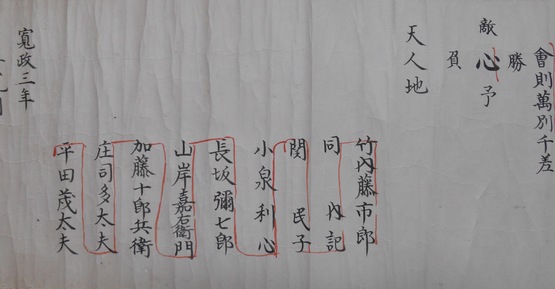 會則萬別千差
勝
敵心予
負
天人地
竹內藤市郎
同 內記
関 民子
小泉利心
長坂彌七郎
山岸嘉右衛門
加藤十郎兵衛
庄司多太夫
平田茂太夫
寛政三年